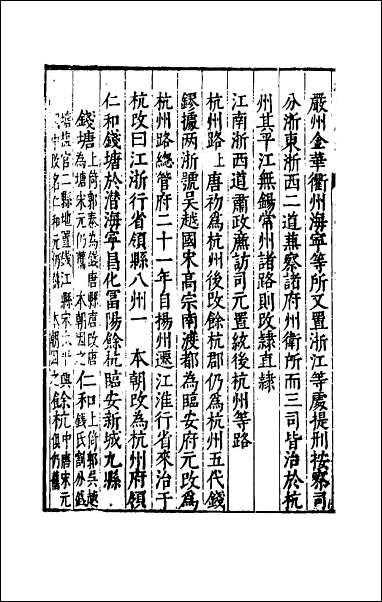 嚴州金華衢州海寧等所又置浙江等處提刑按察司
分浙東浙西二道兼察諸府州衛所而三司皆治於杭
州其平江無錫常州諸路則改隸直隸
江南浙西道肅政廉訪司元置統後杭州等路
杭州路上唐初為杭州後改餘杭郡仍為杭州五代錢
鏐據兩浙號吳越國宋高宗南渡都為臨安府元改為
杭州路總管府二十一年自揚州遷江淮行省來治于
杭改曰江浙行省領縣八州一 本朝改為杭州府領
仁和錢塘於潛海寧昌化富陽餘杭臨安新城九縣
錢塘上倚郭秦為錢唐縣唐改唐為塘宋元仍舊 本朝因之仁和上倚郭吳越錢氏割錢
塘鹽官二縣地置錢江縣宋太平興中改名仁和元仍舊 本朝因之餘杭中唐宋元俱仍舊